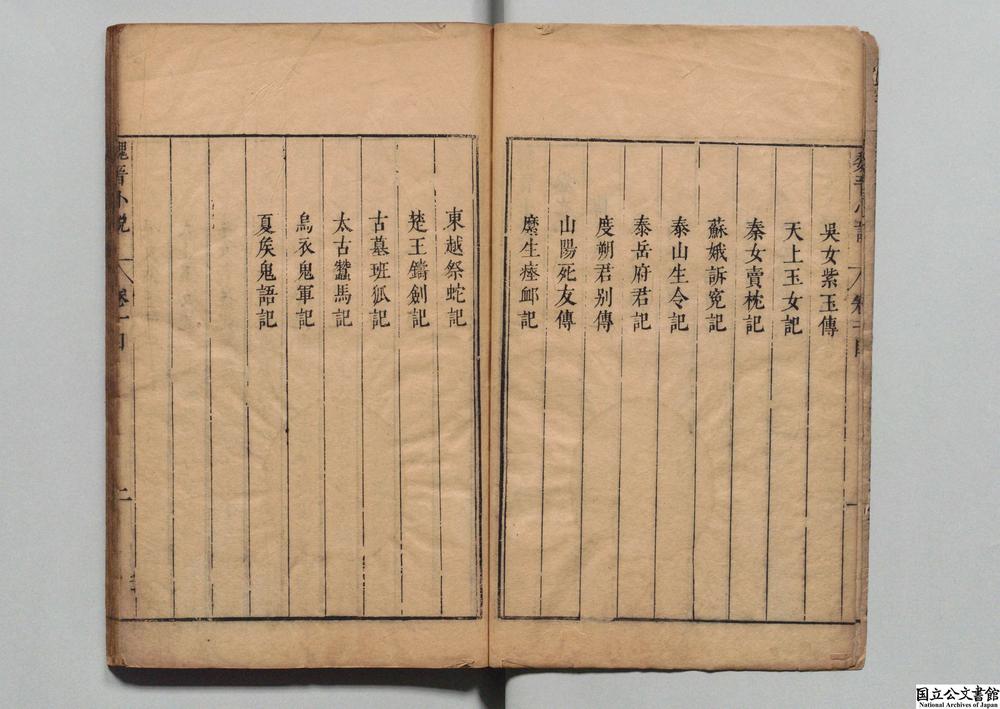 吳女紫玉傳
天上玉女記
秦女賣枕記
蘇娥訴寃記
泰山生令記
泰岳府君記
度朔君别傳
山陽死友傳
糜生瘞卹記
東越祭蛇記
楚王鑄劍記
古墓班狐記
太古蠶馬記
烏衣鬼軍記
夏矦鬼語記
魏晋小說
卷十四
二
国立公文書館
National Archives of Japan